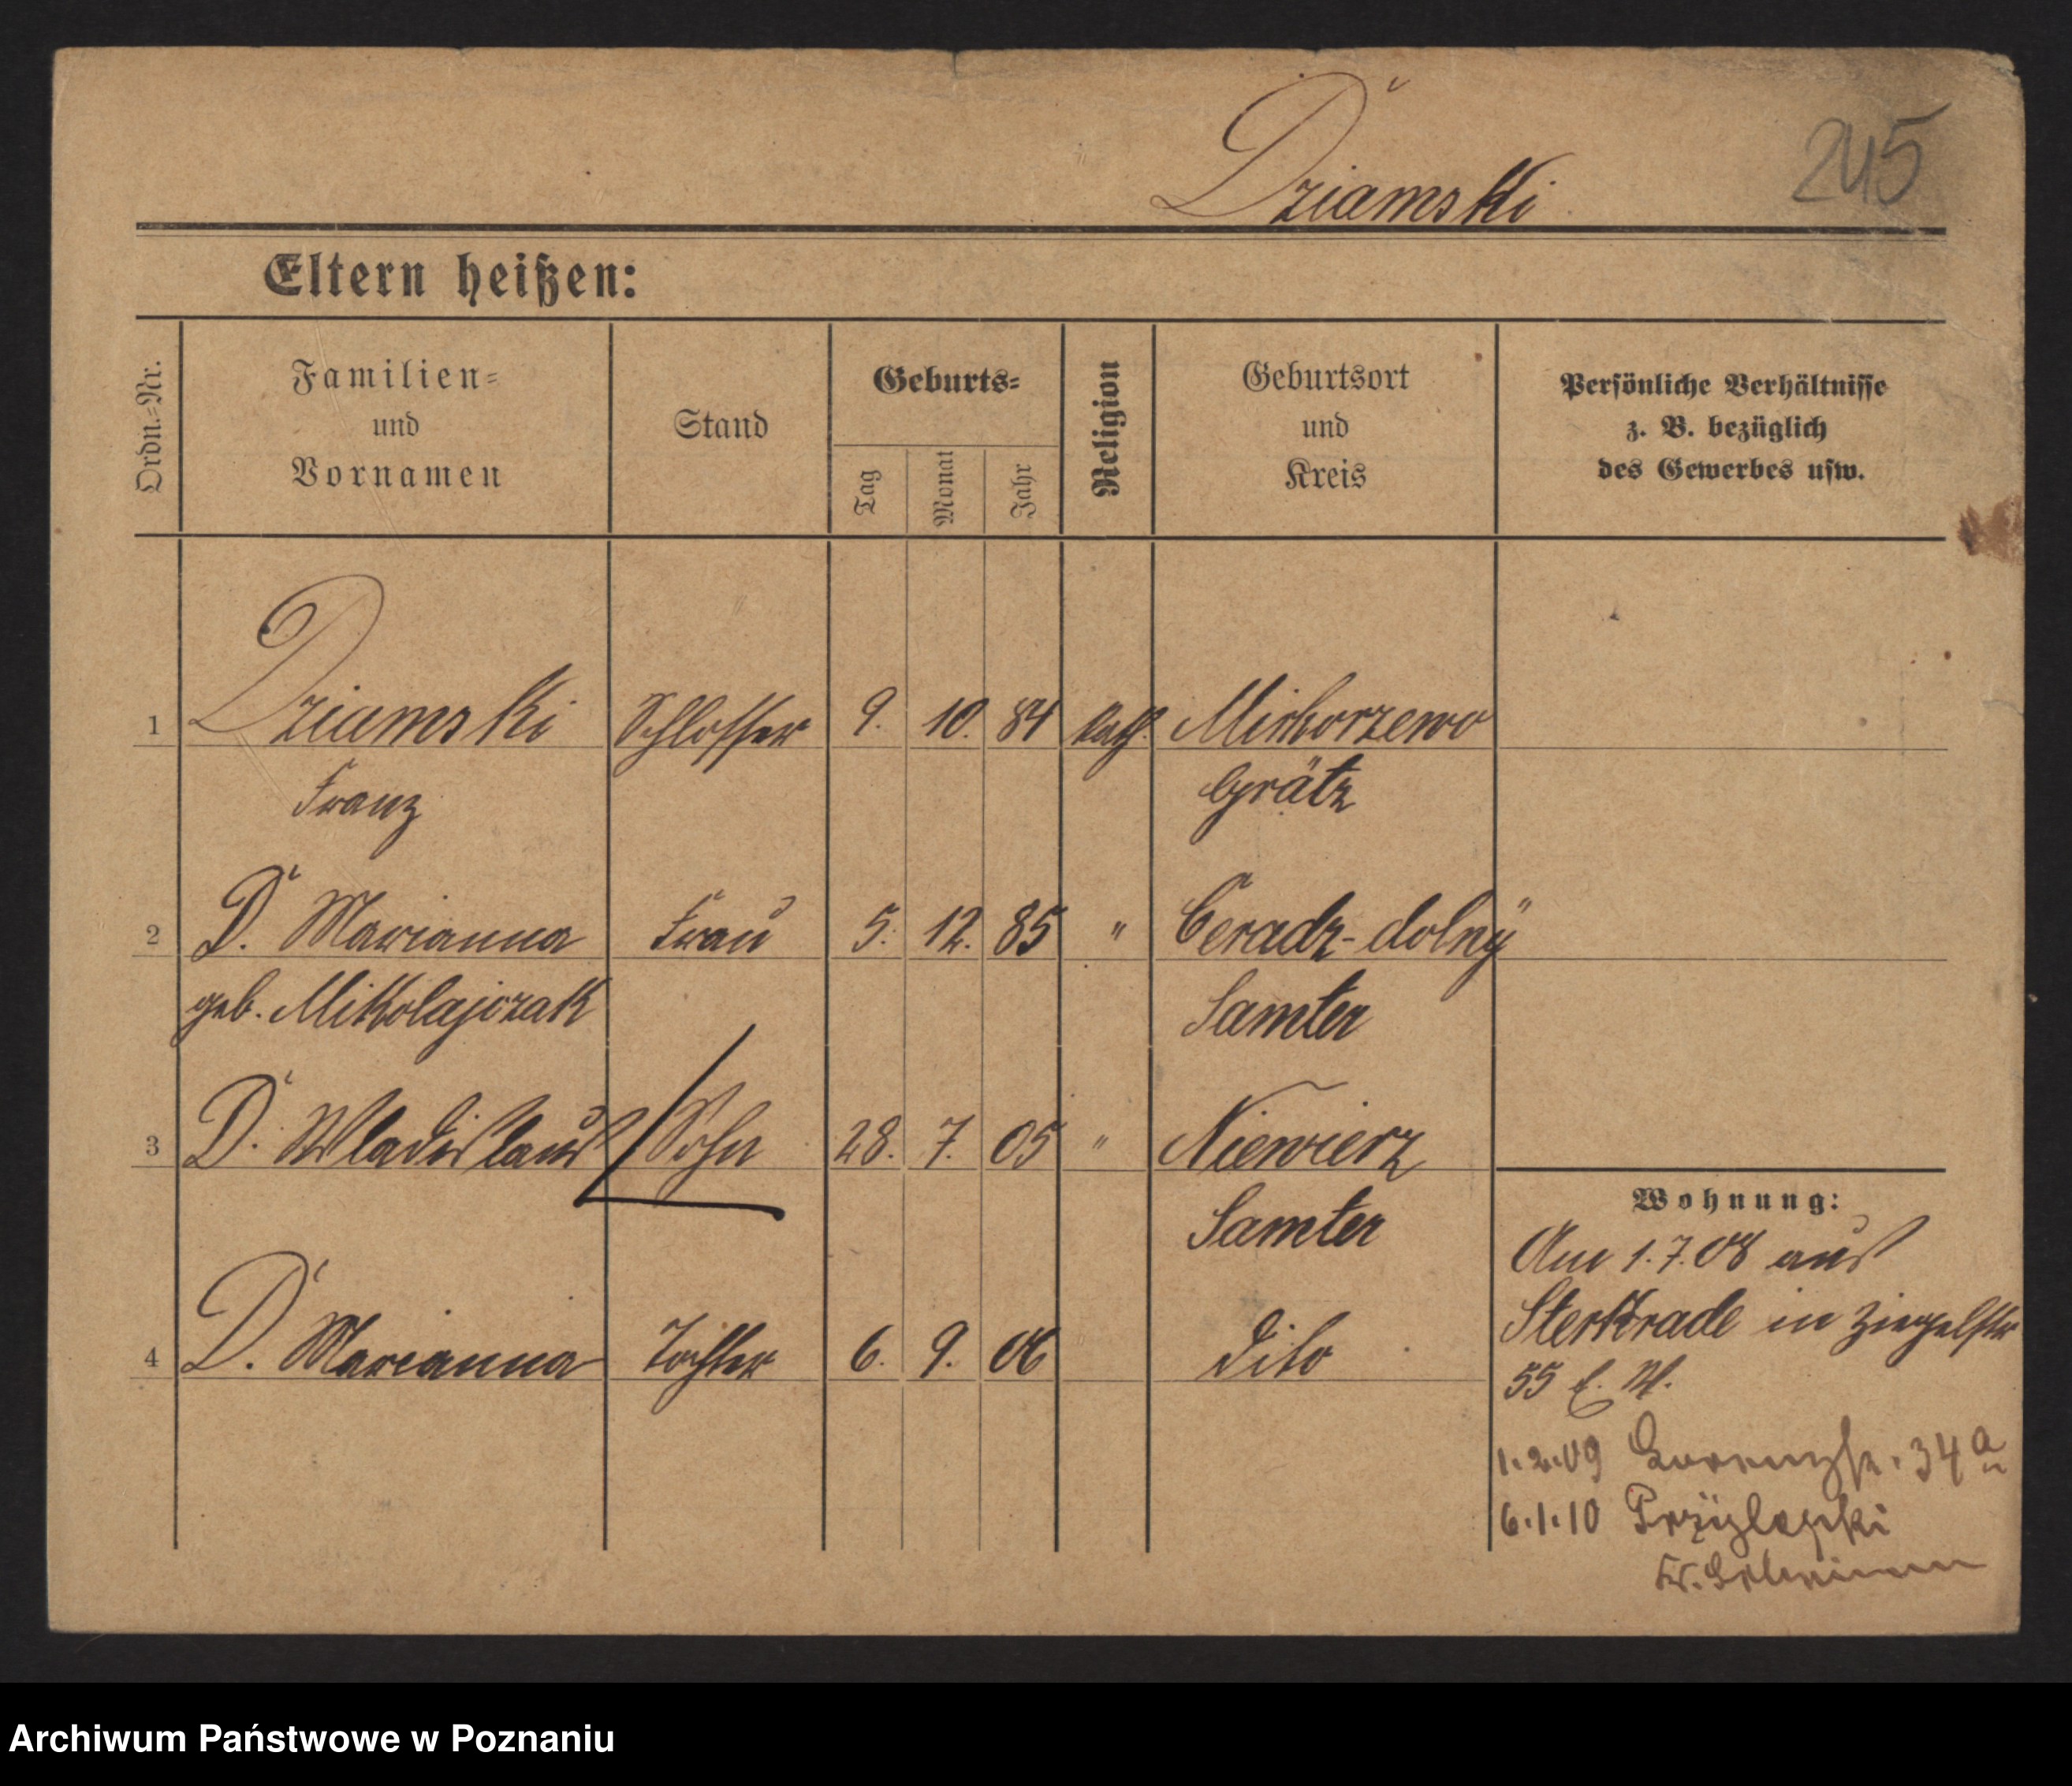 Dziamski
245
Eltern heißen:
Ordn.-Nr.
Familien-
und
Vornamen
Stand
Geburts-
Tag
Monat
Jahr
Religion
Geburtsort
und
Kreis
Persönliche Verhältnisse
z. B. bezüglich
des Gewerbes usw.
1 Dziamski Schlosser 9. 10. 84 kath. Mickorzewo
Franz Grätz
2 D. Marianna Frau 5. 12. 85 " Ceradz-dolny
geb. Mikolajczak Samter
3 D. Wladislaus Sohn 28. 7. 05 " Niewierz
Samter
4 D. Marianna Tochter 6. 9. 06 dito
Wohnung:
Am 1.7.08 aus
Sterkrade in Ziegelstr
55 b. M.
1.2.09 34a
6.1.10 Przylepki
Kr. Schrimm
Archiwum Państwowe w Poznaniu